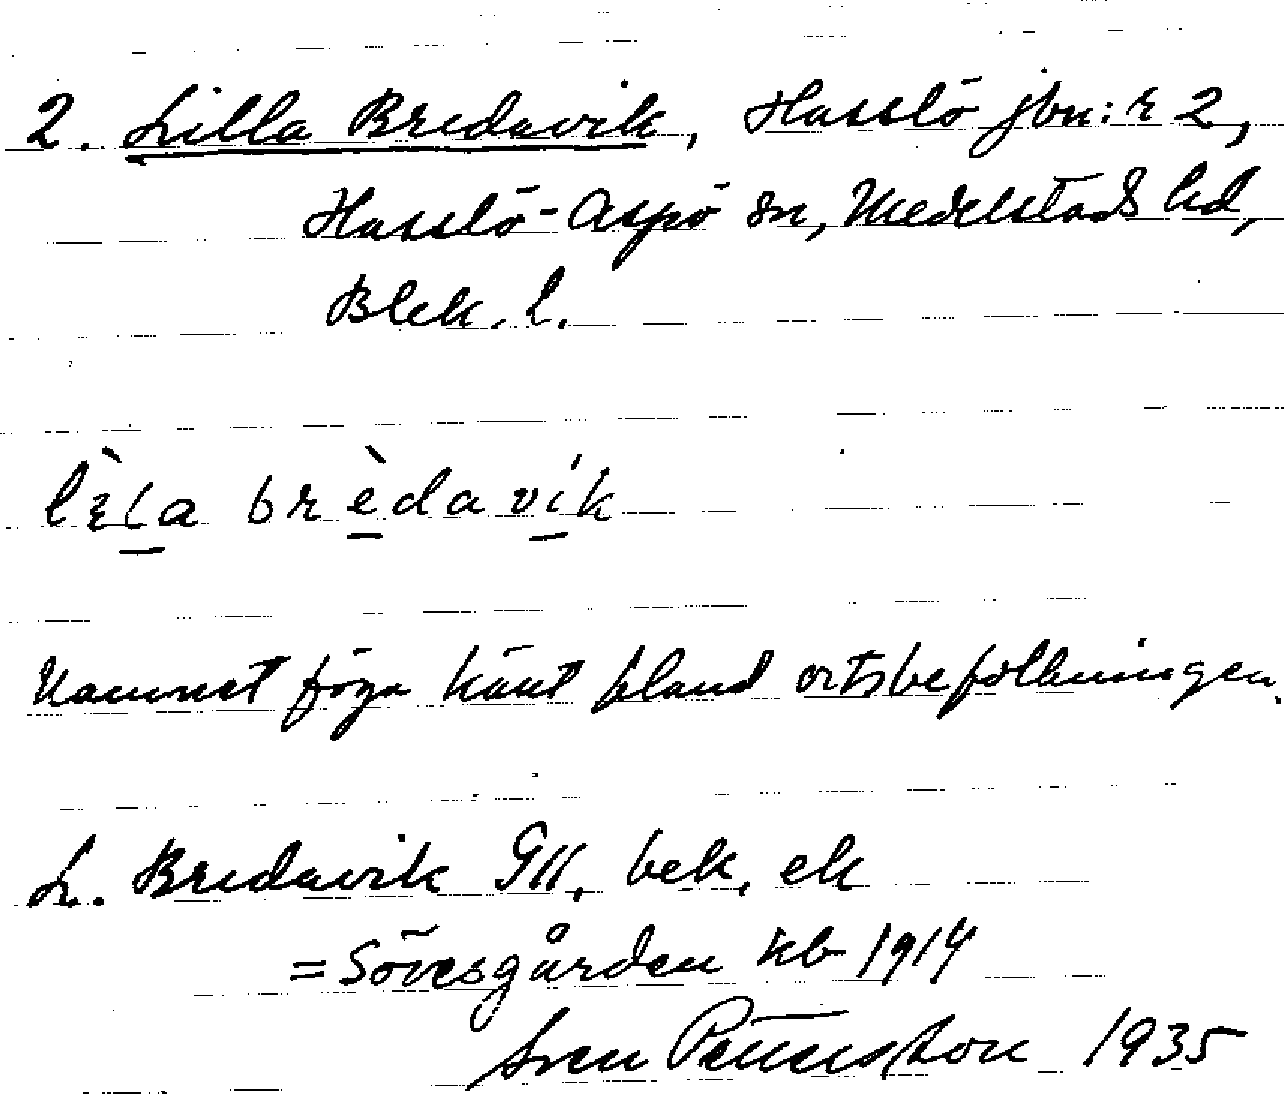 2. Lilla Bredavik, Hasslö jbn:r 2,
Hasslö-Aspö sn, Medelstads hd,
Blek. l.
bland ortsbefolkningen.
Namnet föga känt bland ortsbefolkningen.
L. Bredavik GK, bek, ek
= Sövesgården kb 1914
Sven Pettersson 1935